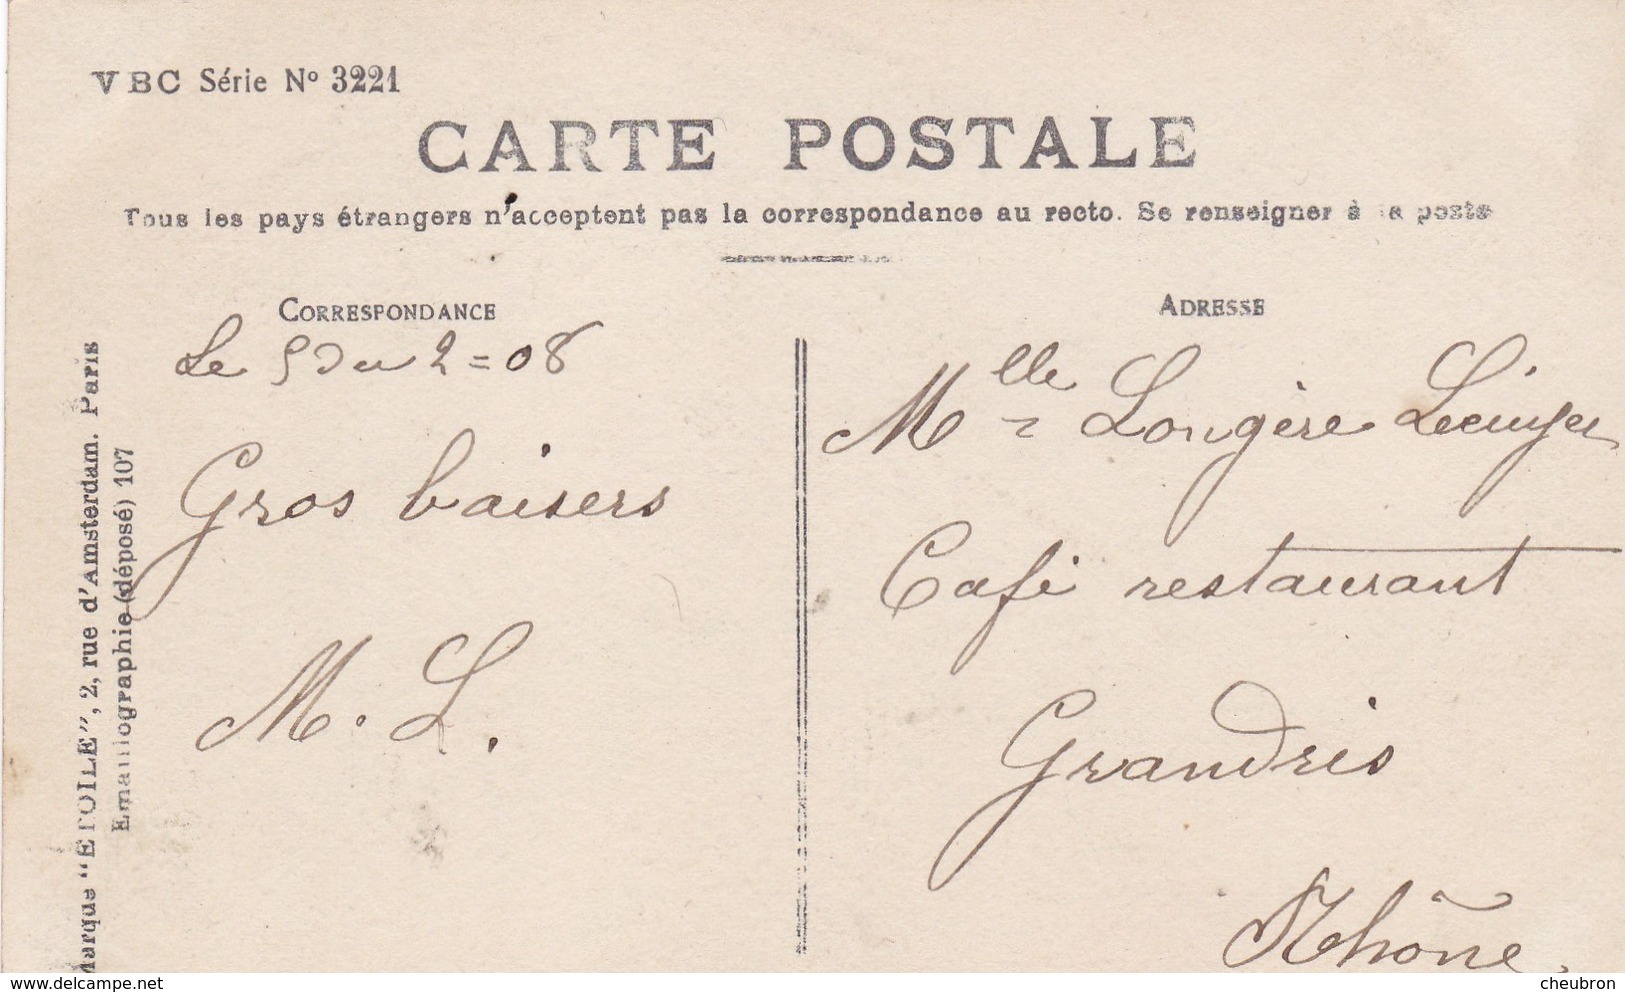 VBC Série Nº 3221
CARTE POSTALE
Tous les pays étrangers n'acceptent pas la correspondance au recto. Se renseigner à la poste
CORRESPONDANCE
Le 5 Du 2 = 08
Gros baisers
M. L.
ADRESSE
Mlle Longère
Café restaurant
Grandris
Rhône.
Marque "ETOILE", 2, rue d'Amsterdam. Paris
Emaillographie (déposé) 107
delcampe.net
cheubron